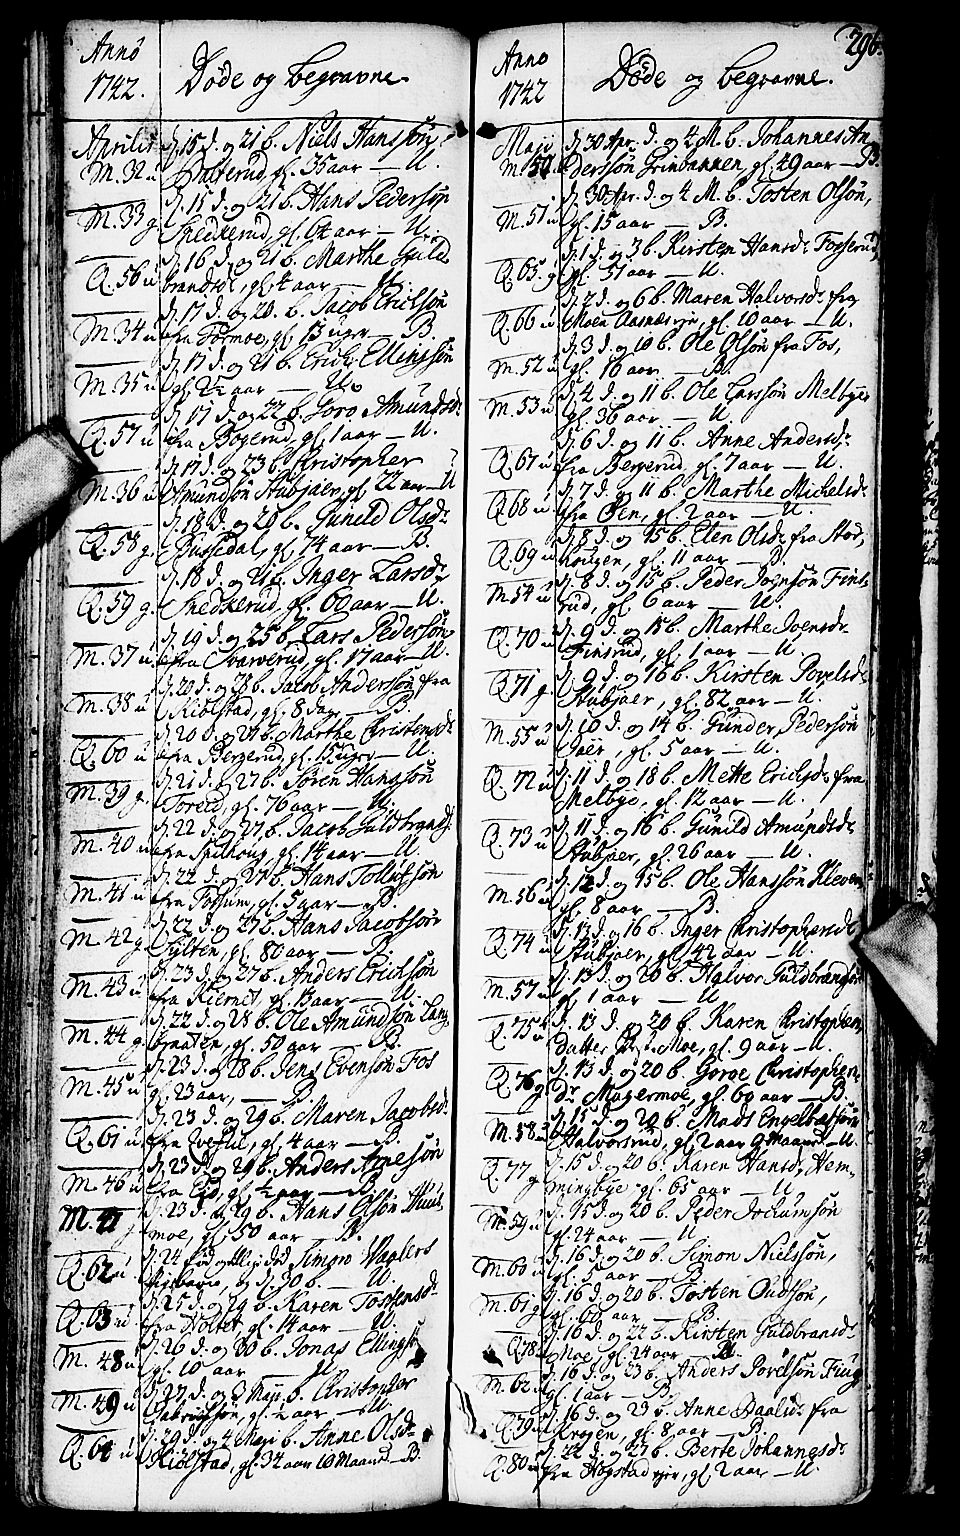 Anno
1742.
Døde og begravne.
Aprilis d. 15 d. og 21 b. Niels Hanssøn
M. 32 u Dalterud, gl. 35 aar — U.
d. 15 d. og 21 b. Hans Pederssøn
M. 33 g. Snedkerud, gl. 64 aar — U.
d. 16 d. og 21 b. Marthe Guld
Q. 56 u brandsd., gl. 4 aar —
d. 17 d. og 20. b. Jacob Erichsøn
M. 34 u fra Formoe, gl. 13 uger — B.
d. 17 d. og 21 b. Erich Ellingssøn
M. 35 u gl. 2½ aar — U.
d. 17 d. og 22 b. Goro Amundsd.
Q. 57 u fra Bøgerud, gl. 1 aar — U.
d. 17 d. og 23 b. Christopher
M. 36 u Amundsøn Stubjær, gl. 22 aar — U
d. 18 d. og 26 b. Gunild Olsd.
Q. 58 g. Bussedal, gl. 74 aar — B.
d. 18 d. og 21 b. Inger Larsd.
Q. 59 g. Snedkerud, gl. 60 aar — U.
d. 19 d. og 25 b. Lars Pederssøn
M. 37 u fra Svarverud, gl. 17 aar — U.
d. 20 d. og 28 b. Jacob Anderssøn fra
M. 38 u Kiølstad, gl. 8 dage — B.
d. 20 d. og 27 b. Marthe Christensd.
Q. 60 u fra Bergerud, gl. 15 uger — U.
d. 21 d. og 27 b. Søren Hanssøn
M. 39 g. Toreid, gl. 76 aar — U.
d. 22 d. og 27 b. Jacob Guldbrands.
M. 40 u fra Spilhoug, gl. 14 aar — U.
d. 22 d. og 27 b. Hans Tollufsøn
M. 41 u fra Fossum, gl. 5 aar — B.
d. 22 d. og 27 b. Hans Jacobsøn
M. 42 g. Sylten, gl. 80 aar — B.
d. 23 d. og 27 b. Anders Erichsøn
M. 43 u fra Kiernet, gl. 13 aar — U.
d. 22 d. og 28 b. Ole Amundsøn Lang
M. 44 g. braaten, gl. 50 aar — B.
d. 23 d. og 28 b. Jens Evensøn Fos
M. 45 u gl. 23 aar, — B.
d. 23 d. og 29 b. Maren Jacobsd.
Q. 61 u fra, gl. 4 aar — B.
d. 23 d. og 29 b. Anders Arnesøn
M. 46 u fra Eid, gl. ½ aar — B.
d. 23 d. og 29 b. Hans Olsøn
M. 47 g. moe, gl. 50 aar — B.
d. 24 fød og død Simon Vaalers
Q. 62 u Pigebarn, og d. 30 b. — U.
d. 25 d. og 29 b. Karen Tostensd.
Q. 63 u. fra Holter, gl. 14 aar — U.
d. 26 d. og 30 b. Jonas Ellings
M. 48 u gl. 10 aar — U
d. 27 d. og 3 Maij b. Christopher
M. 49 u Gabrielsøn, gl. ½ aar — U
d. 29 d. og 4 Maji b. Anne Olsd.
Q. 64 u Kiølstad, gl. 32 aar 10 Maaned — B.
296.
Anno
1742
Døde og begravne.
Maji d. 30 Apr. d. og 4 M. b. Johannes An
M. 50. derssøn Grinbannen, gl. 49 aar — B.
d. 30 Apr. d. og 4 M. b. Tosten Olsøn,
M. 51 u gl. 15 aar — B.
d. 1 d. og 3 b. Kirsten Hansd. Fosserud,
Q. 65 g. gl. 51 aar — U.
d. 2 d. og 6 b. Maren Halvorsd. fra
Q. 66 u Moen Aasnæs eje, gl. 10 aar — U.
d. 3 d. og 10 b. Ole Olsøn fra Fos,
M. 52 u gl. 16 aar — B.
d. 4 d. og 11 b. Ole Larssøn Melbye
M. 53 u gl. 36 aar — U.
d. 6 d. og 11 b. Anne Andersd.
Q. 67 u fra Bergerud, gl. 7 aar — U.
d. 7 d. og 11 b. Marthe Michelsd.
Q. 68 u fra Øen, gl. 2 aar — U.
d. 8 d. og 15 b. Elen Olsd. fra Stor,
Q. 69 u hougen, gl. 11 aar — B.
d. 8 d. og 15 b. Peder Joensøn Fins
M. 54 u rud, gl. 6 aar — U.
d. 9 d. og 15 b. Marthe Joensd.
Q. 70 u Finsrud, gl. 1 aar — U.
d. 9 d. og 16 b. Kirsten Povelsd.
Q. 71 g. Stubjær, gl. 82 aar — U
d. 10 d. og 14 b. Gunder Pederssøn
M. 55 u Jaer, gl. 5 aar — U.
d. 11 d. og 18 b. Mette Erichsd. fra
Q. 72 u Melbye, gl. 12 aar — U.
d. 11 d. og 16 b. Gunild Amundsd.
Q. 73 u Stubjær, gl. 26 aar — U.
d. 12 d. og 15 b. Ole Hanssøn Kleven,
M. 56 u gl. 8 aar — B.
d. 13 d. og 16 b. Inger Christophersd.
Q. 74 u Stubjær, gl. 42 aar — U.
d. 13 d. og 20 b. Halvor Guldbrandsøn
M. 57 u gl. 1 aar — U
d. 13 d. og 20 b. Karen Christophers,
Q. 75 u datter Moe, gl. 9 aar — U.
d. 13 d. og 20 b. Gorge Christophers
Q. 76 g. Dr. Magermoe, gl. 60 aar — B.
d. 15 d. og 20 b. Mads Engelbretssøn
M. 58 u Halvorsrud, gl. 2 aar 9 Maaned — U.
d. 15 d. og 20 b. Karen Hansd. Hem
Q. 77 g. mingbye gl. 65 aar — U
d. 15 d. og 20 b. Peder Jochumsøn
M. 59 u gl. 24 aar — U.
d. 16 d. og 20 b. Simon Nielssøn,
M. 60 u gl. 5 aar — B
d. 16 d. og 20 b. Tosten Gudssøn,
M. 61 g. gl. 60 aar — B.
d. 16 d. og 22 b. Kirsten Guldbrandsd.
Q. 78 Moe, gl. 24 aar — U.
d. 16 d. og 23 b. Anders Povelsøn
M. 62 u gl. 1 aar — B.
d. 16 d. og 23 b. Anne Paalsd. fra
Q. 79 u Krogen, gl. 8 aar — B.
d. 22 d. og 27 b. Berte Johannesd.
Q. 80 u fra Hogstad eje, gl. 2 aar — U.